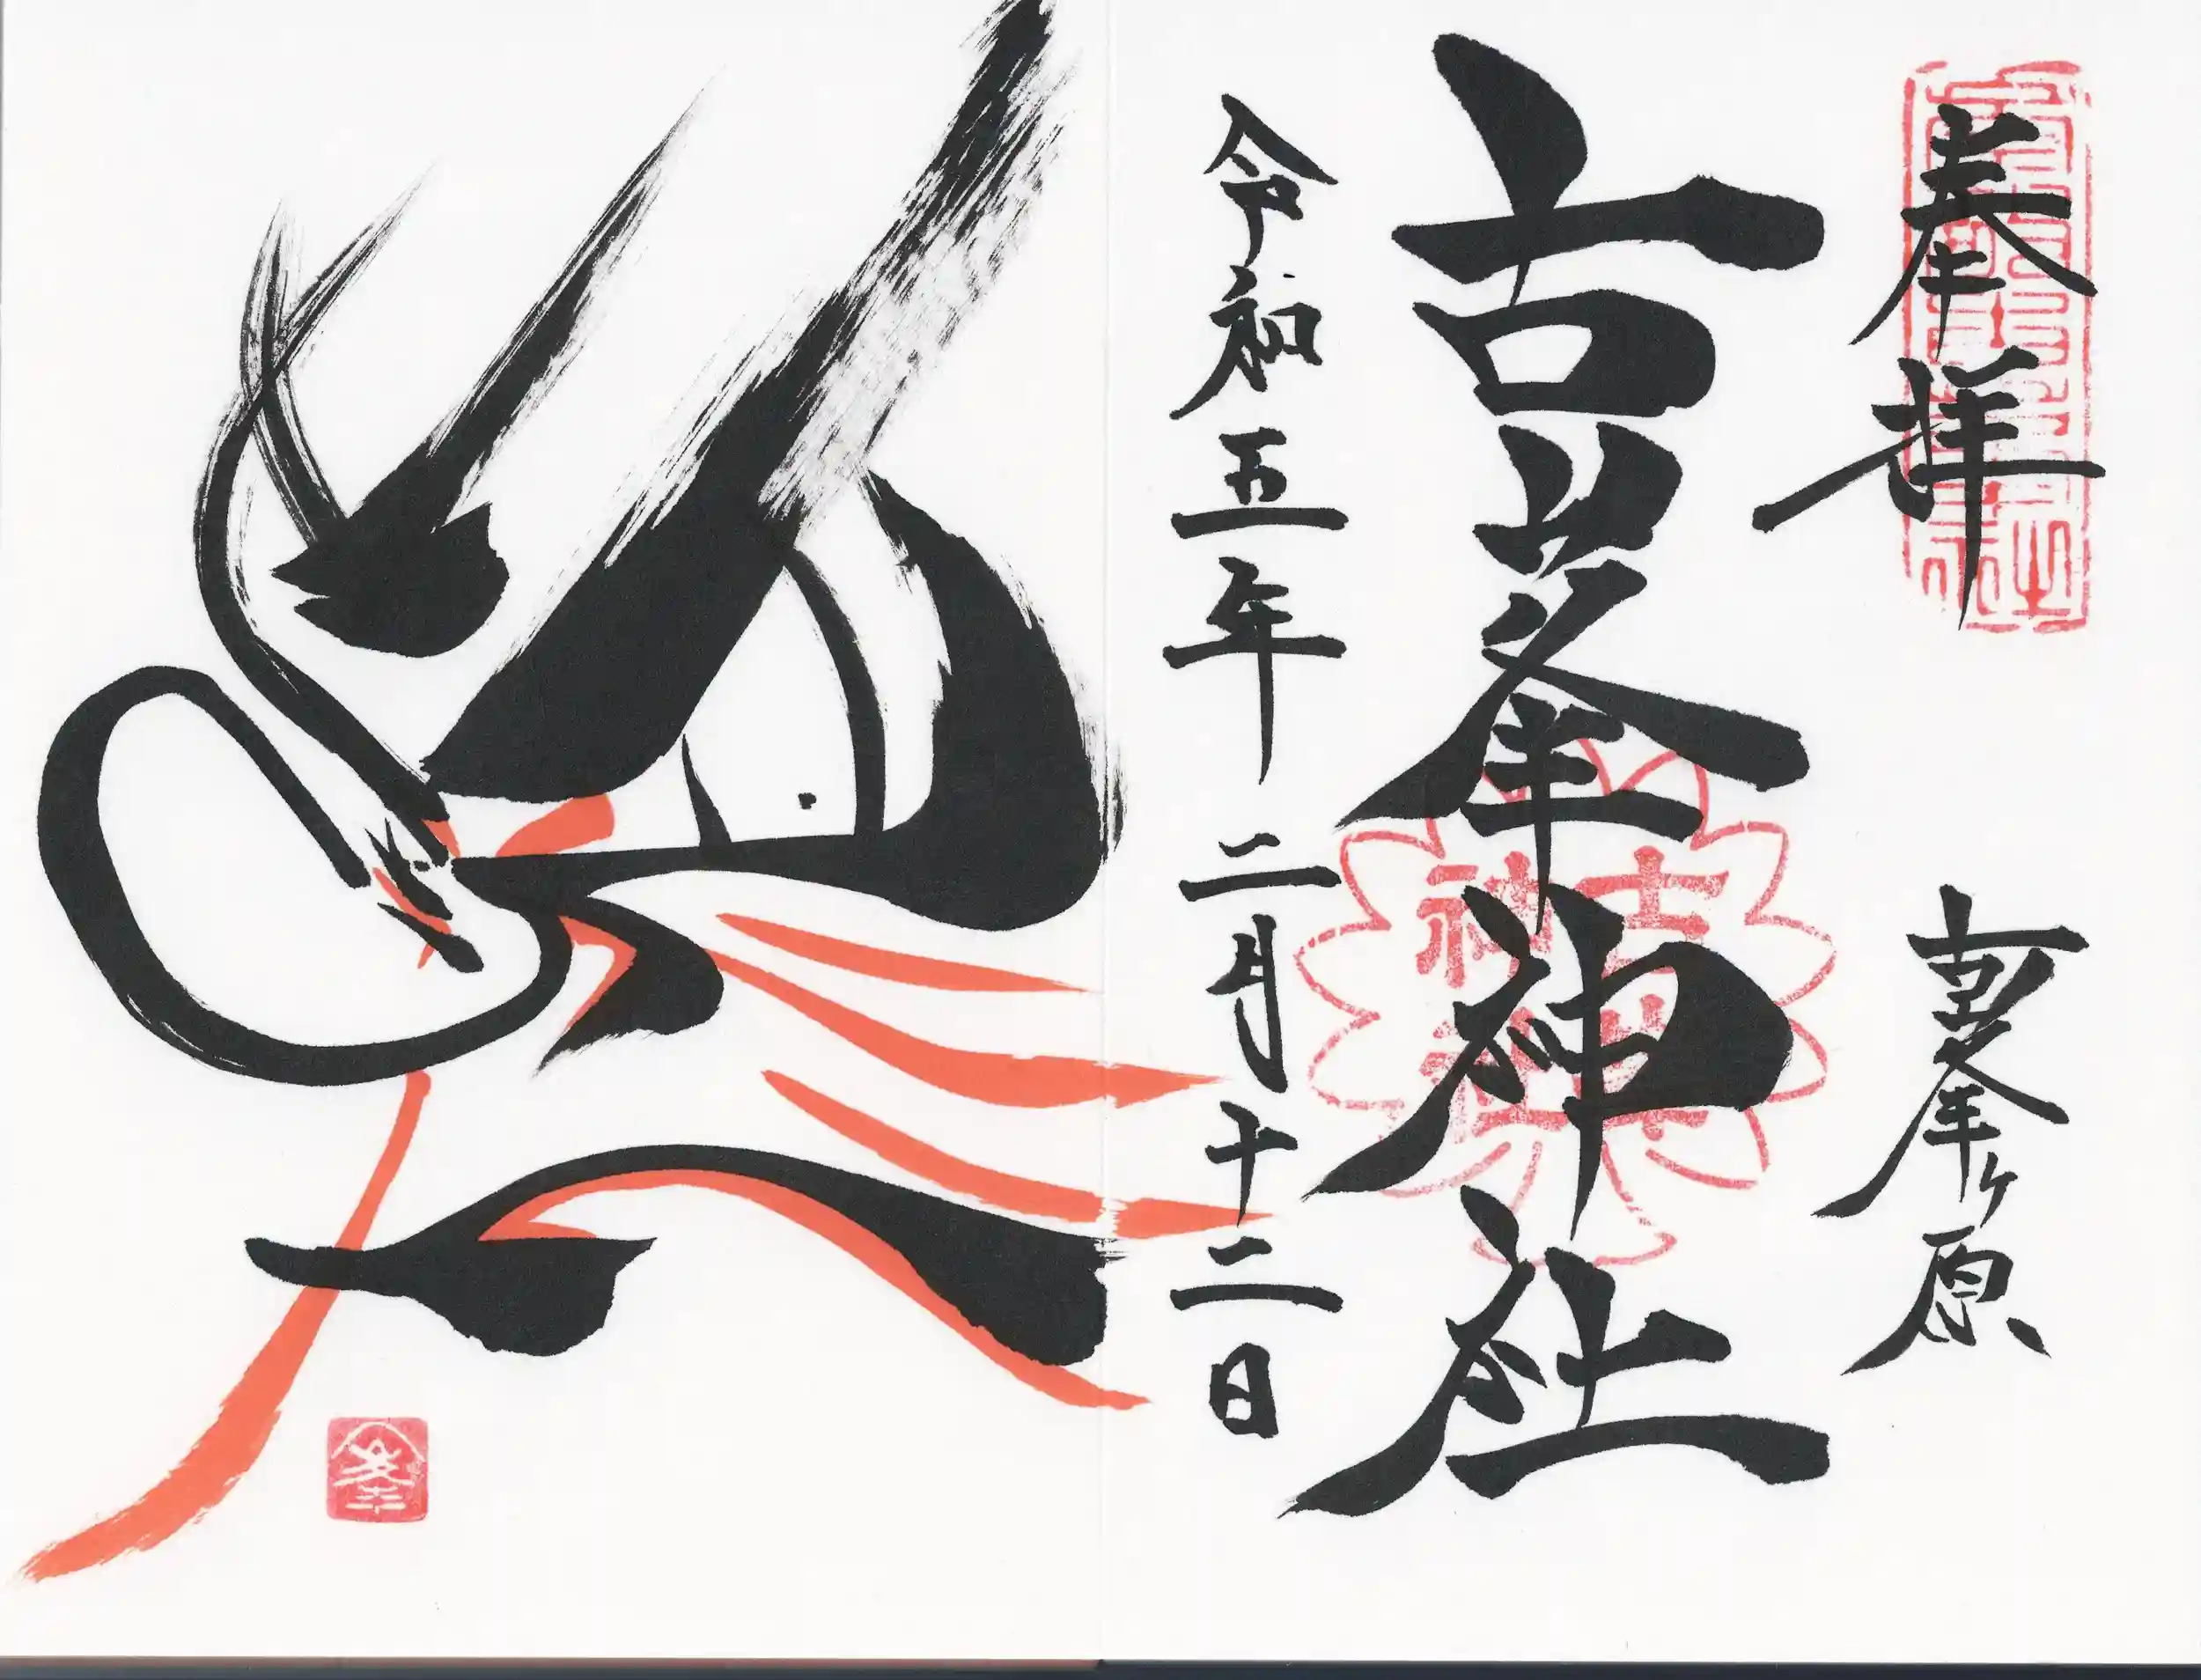 奉拝
古峯ヶ原
古峯神社
古峯
神社
令和五年二月十二日